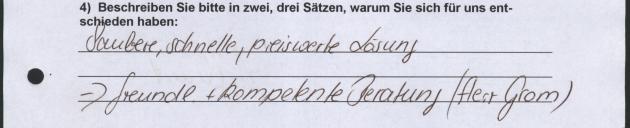 4) Beschreiben Sie bitte in zwei, drei Sätzen, warum Sie sich für uns ent-
schieden haben:
Saubere, schnelle, preiswerte Lösung
=> freundl. + kompetente Beratung (Herr Grom)